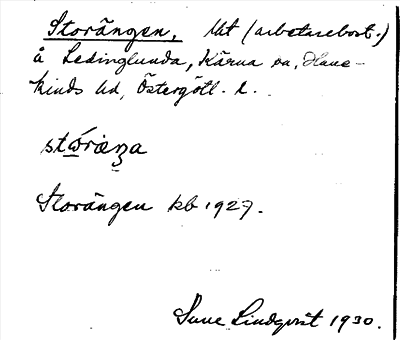 Storängen, lht (arbetarebost.)
å Ledinglunda, Kärna sn, Hane-
kinds hd, Östergötl. l.
Storängen kb 1927.
Sune Lindqvist 1930.